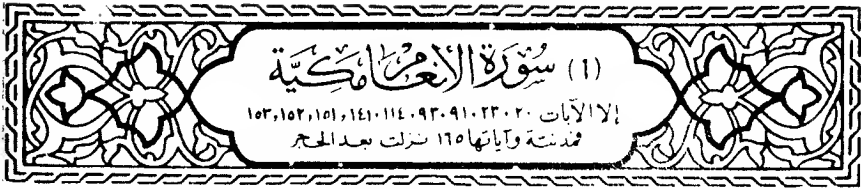 (٦) سُورَةُ الأَنْعَامِ مَكِّيَّة
إلا الآيات ٢٠، ٢٣، ٩١، ٩٣، ١١٤، ١٤١، ١٥١، ١٥٢، ١٥٣
فمدنية وآياتها ١٦٥ نزلت بعد الحجر